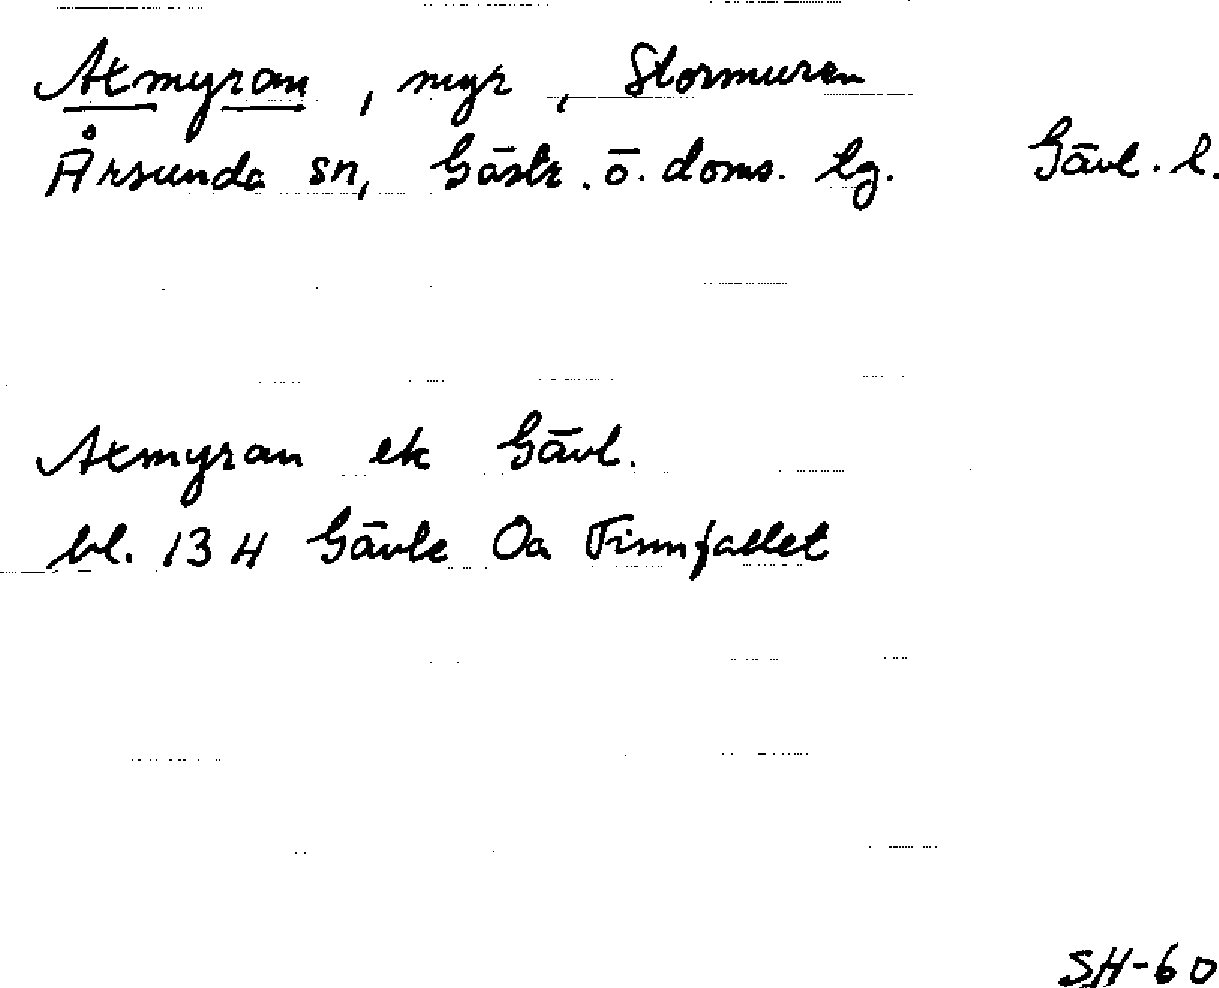 Axmyran, myr, Stormuren
Årsunda sn, Gästr. ö. doms. lg. Gävl. l.
Axmyran ek Gävl.
bl. 134 Gävle Oa Finnfallet
SH-60